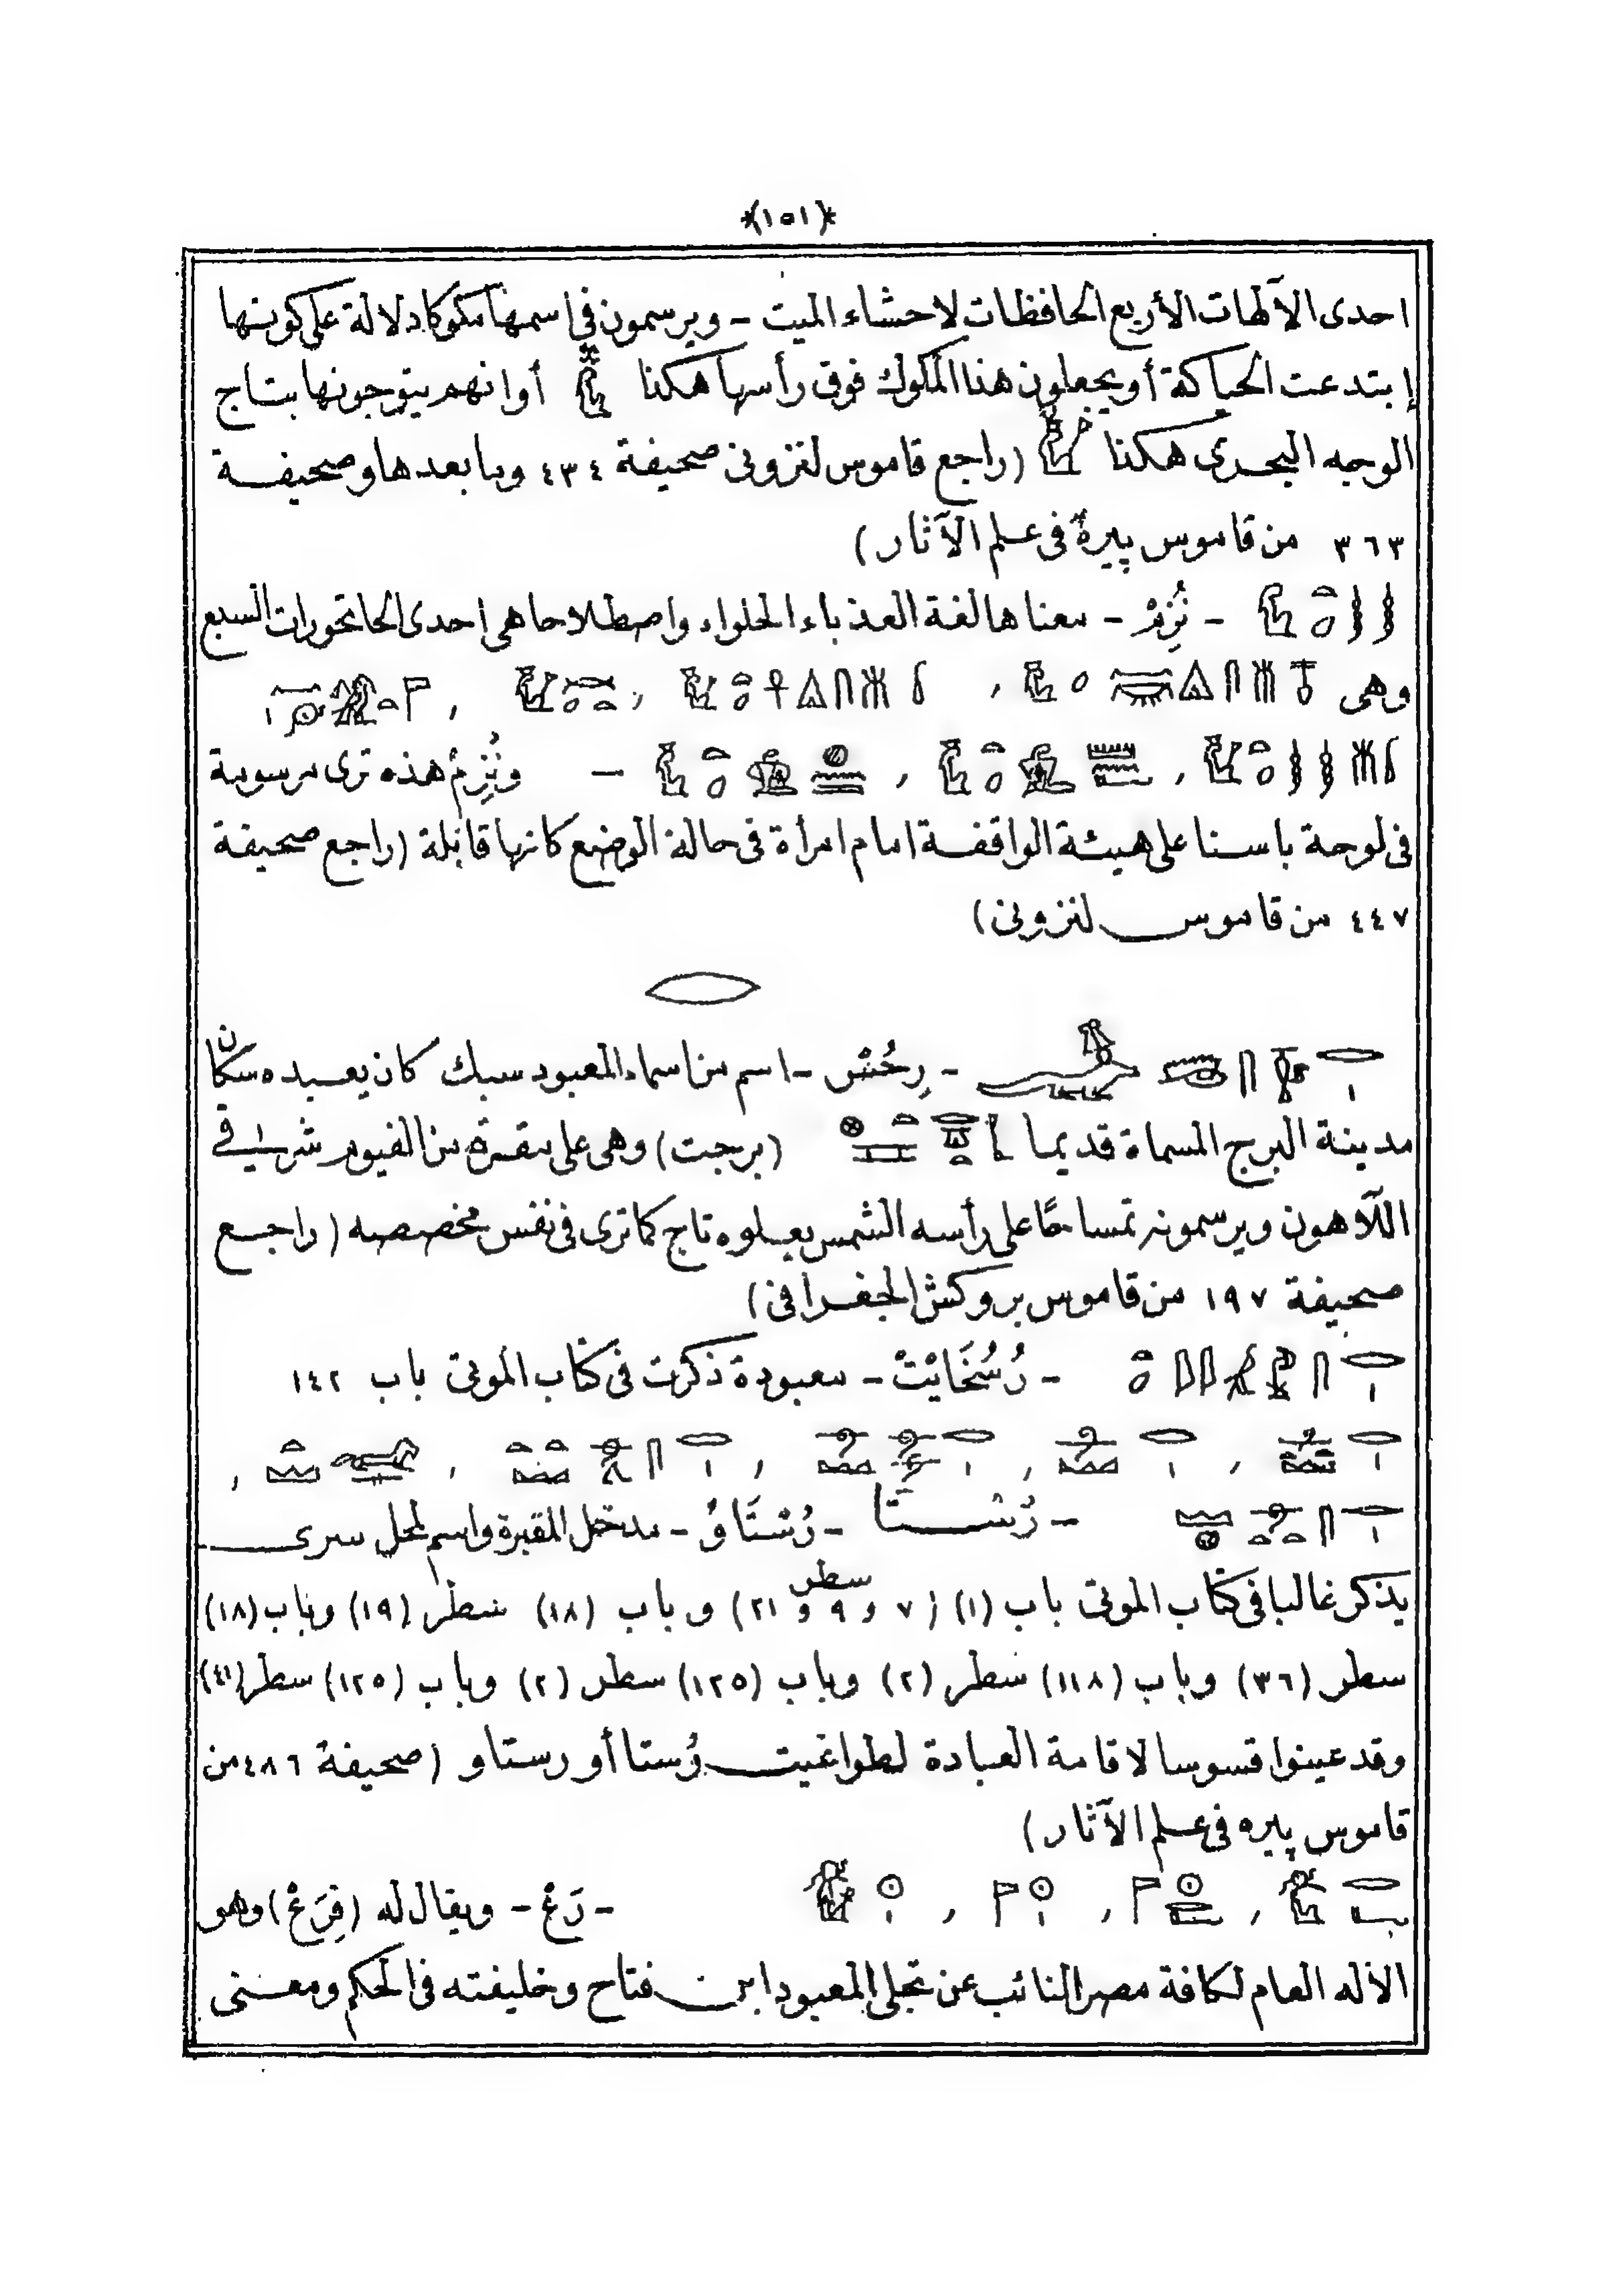 *(١٥١)*
احدى الآلهات الأربع الحافظات لاحشاء الميت - ويرسمون في اسمها مكوكا دلالة على كونها
إبتدعت الحياكة أو يجعلون هذا المكوك فوق رأسها هكذا أو انهم يتوجونها بتاج
الوجه البحرى هكذا (راجع قاموس لنزونى صحيفة ٤٣٤ وما بعدها وصحيفة
٣٦٣ من قاموس پيره فى علم الآثار)
- نُزِمْ - معناها لغة العذباء الحلواء واصطلاحا هى احدى الحاتحورات السبع
وهى
- ونُزِمْ هذه ترى مرسومة
فى لوحة باسنا على هيئة الواقفة امام امرأة فى حالة الوضع كانها قابلة (راجع صحيفة
٤٤٧ من قاموس لنزونى)
- رِحُسْ - اسم من اسماء المعبود سبك كان يعبده سكان
مدينة البرج المسماة قديما (برجت) وهى على مقربة من الفيوم شرقى
اللآهون ويرسمونه تمساحًا على رأسه الشمس يعلوه تاج كما ترى فى نفس مخصصه (راجع
صحيفة ١٩٧ من قاموس بروكش الجغرافى)
- رُسُخَايْتْ - معبودة ذكرت فى كتاب الموتى باب ١٤٢
- رُسْتَا - رُسْتَاوُ - مدخل المقبرة واسم لمحل سرى
يذكر غالبا فى كتاب الموتى باب (١) سطر (٧ و ٩ و ٢١) و باب (١٨) سطر (١٩) وباب (١٨)
سطر (٣٦) وباب (١١٨) سطر (٢) وباب (١٢٥) سطر (٢) وباب (١٢٥) سطر (٤١)
وقد عينوا قسوسا لاقامة العبادة لطواغيت رُستا أو رستاو (صحيفة ٤٨٦ من
قاموس پيره فى علم الآثار)
- رَعْ - ويقال له (فِرَعْ) وهو
الاله العام لكافة مصر النائب عن تجلى المعبود ابن فتاح وخليفته فى الحكم ومعنى